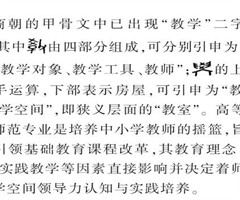 商朝的甲骨文中已出现“教学”二字
其中 由四部分组成，可分别引申为
教学对象、教学工具、教师”； 的上
手运算，下部表示房屋，可引申为“教
学空间”，即狭义层面的“教室”。高等
师范专业是培养中小学教师的摇篮，旨
引领基础教育课程改革，其教育理念
实践教学等因素直接影响并决定着师
学空间领导力认知与实践培养。